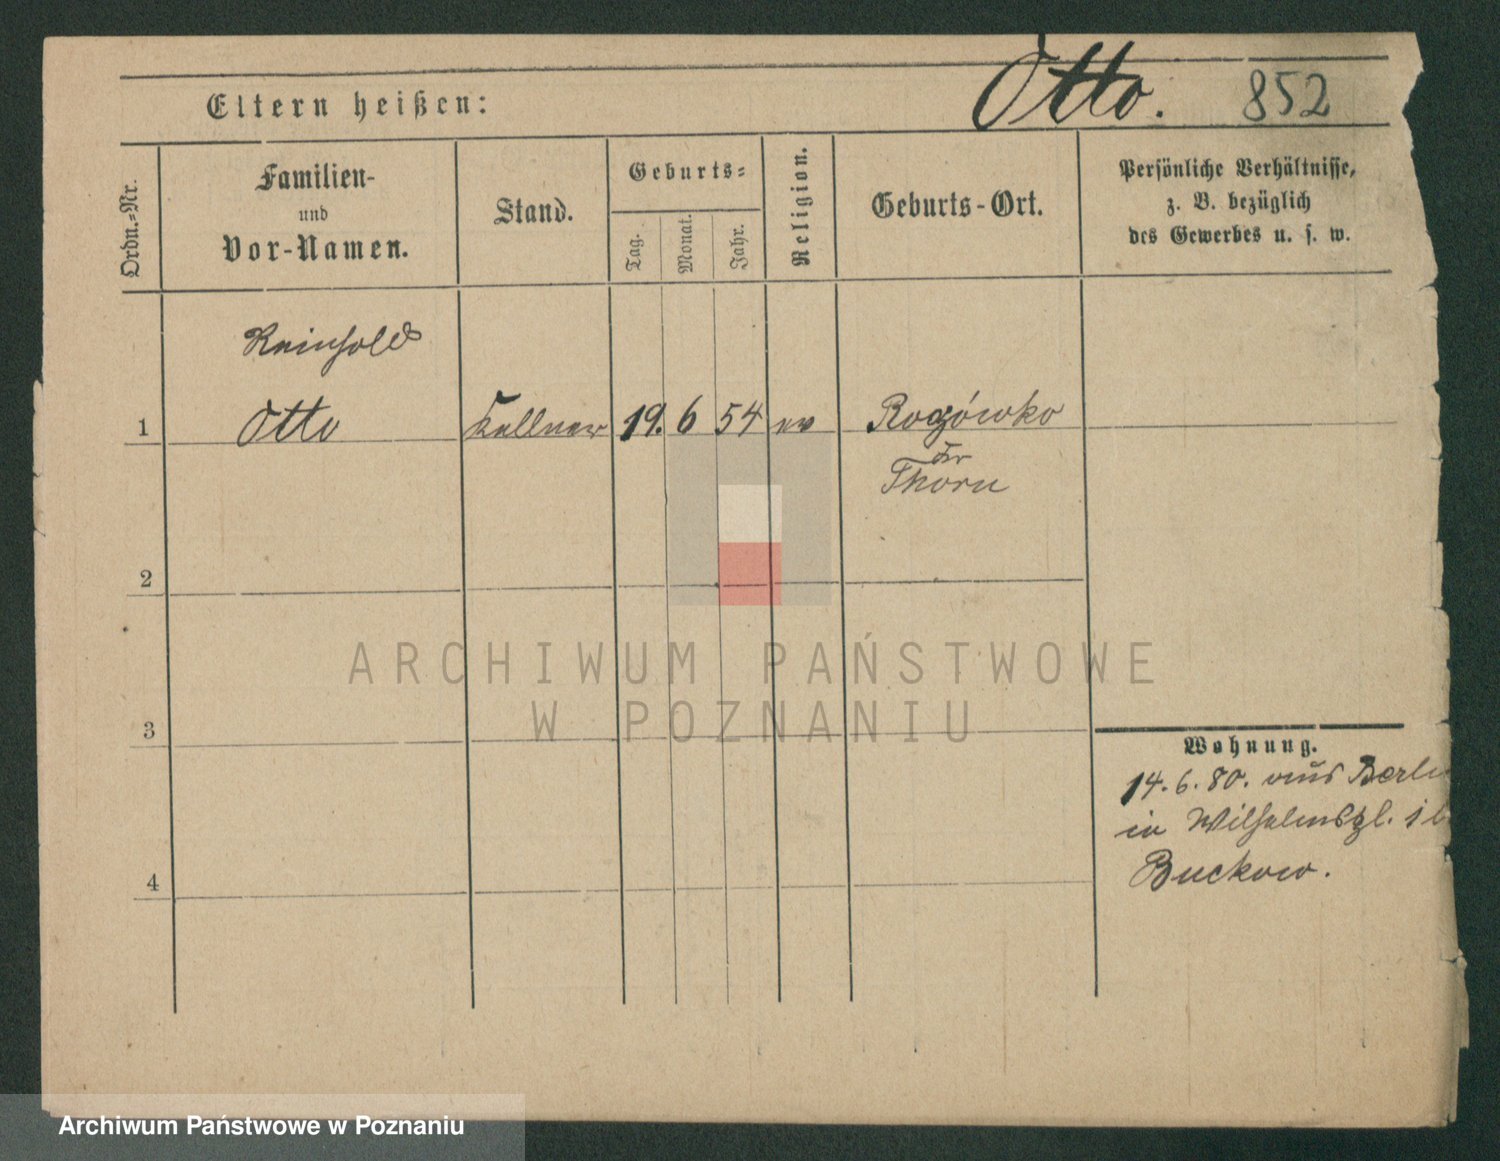 Otto. 852
Eltern heißen:
Ordn.=Nr.
Familien-
und
Vor-Namen.
Stand.
Geburts=
Tag.
Monat.
Jahr.
Religion.
Geburts-Ort.
Persönliche Verhältnisse,
z. B. bezüglich
des Gewerbes u. s. w.
Reinhold
1 Otto Kellner 19. 6 54 ev Rogówko
Kr
Thorn
2
3
4
Wohnung.
14. 6. 80. aus Berlin
in Wilhelmspl.
Buckow.
ARCHIWUM PAŃSTWOWE
W POZNANIU
Archiwum Państwowe w Poznaniu